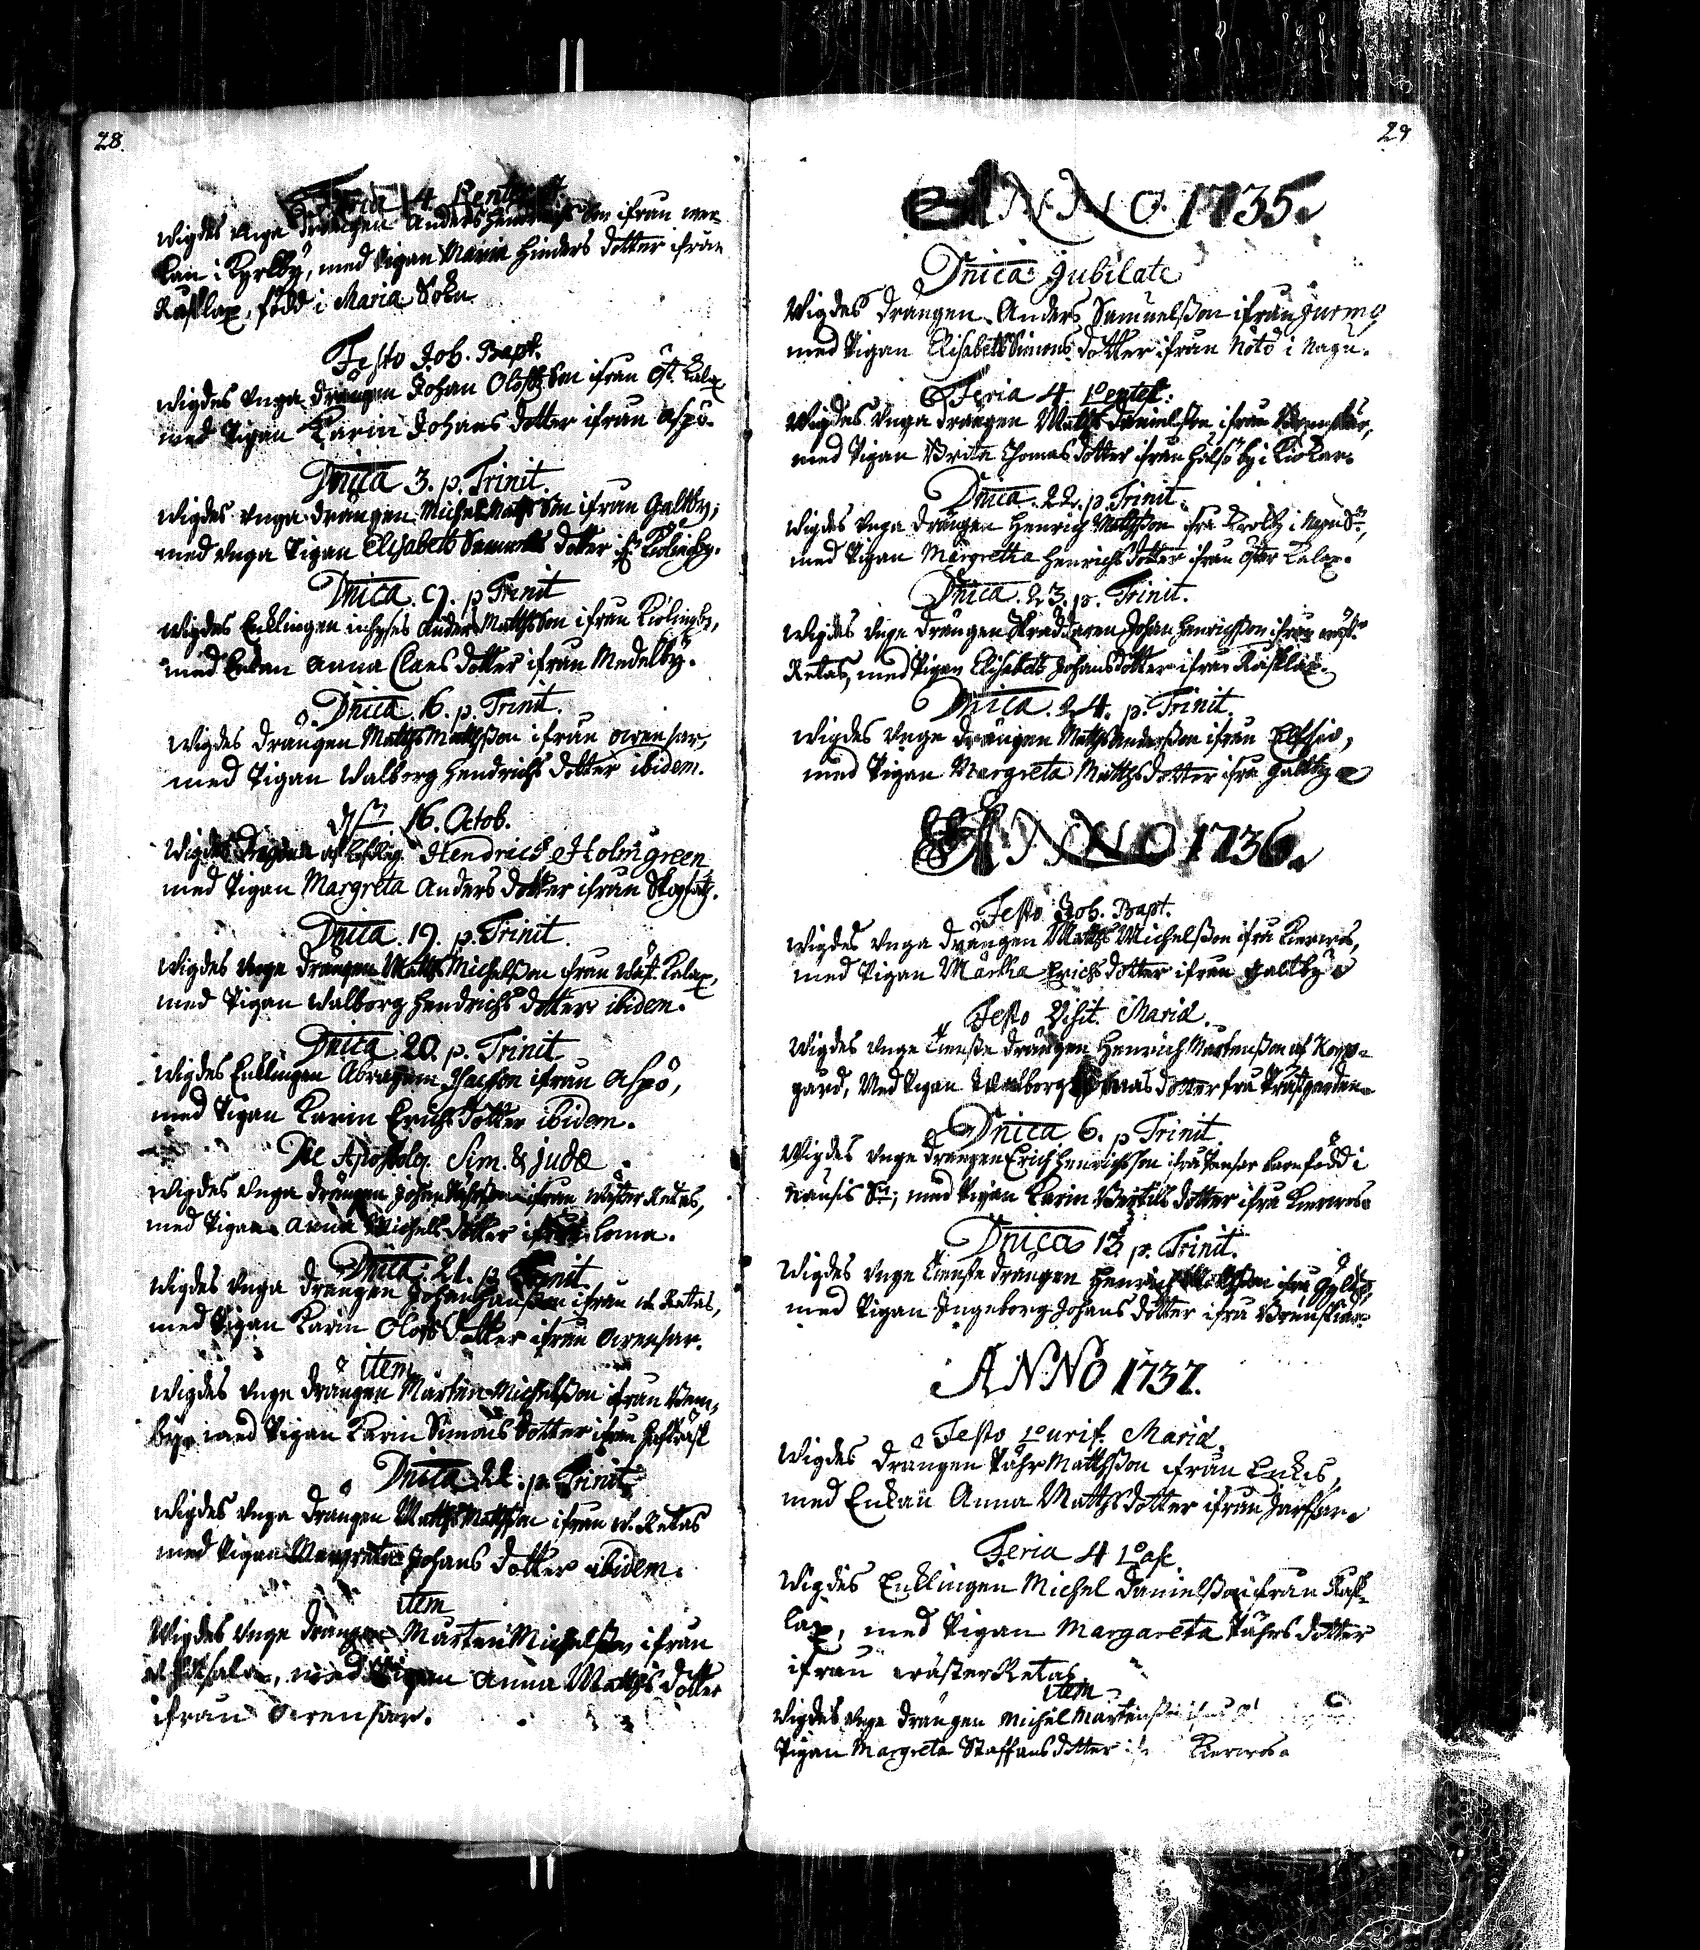 28.
Feria 4. Pentec.
Wigdes Unga drängen Anders Hendrichs Son ifrån wer-
kan i Kyrkby, med Pigan Maria Hinders dotter ifrån
Rafklax, född i Maria Sokn
Festo Joh. Bapt.
Wigdes Unga drängen Johan Olofs Son ifrån Öst. Kalax
med Pigan Karin Johans dotter ifrån Aspö.
Dnica 3. p. Trinit.
Wigdes Unga drängen Michel Matts Son ifrån Galtby,
med Unga Pigan Elisabeth Samuels dotter ifr.
Dnica. 9. p Trinit
Wigdes Enklingen Anders Matthsson ifrån
med Enkan Anna Claes dotter ifrån Medelby.
Dnica. 16. p. Trinit.
Wigdes drängen Matths Matthsson ifrån Avensar,
med Pigan Walborg Hendrichs dotter ibidem.
16. Octob.
Wigdes Hendrich Holmgreen
med Pigan Margreta Anders dotter ifrån
Dnica. 19. p. Trinit.
Wigdes Unge drängen Matths Michelsson ifrån Wäst. Kalax,
med Pigan Walborg Hendrichs dotter ibidem.
Dnica 20. p. Trinit
Wigdes Enklingen Abraham Isacsson ifrån Aspö,
med Pigan Karin Erichs dotter ibidem.
Die Apostolor. Sim. & Judæ
Wigdes Unga drängen Johan ifrån Wäster Retas,
med Pigan Anna Michels dotter ifrån Loma.
Dnica. 21. p. Trinit.
Wigdes Unga drängen Johan Hansson ifrån W. Retas,
med Pigan Karin Olofs dotter ifrån Avensar.
item
Wigdes Unge drängen Mårten Michelsson ifrån
by, med Pigan Karin Simons dotter ifrån
Dnica 22. p. Trinit.
Wigdes Unga drängen Matths Mathsson ifrån W. Retas
med Pigan Margreta Johans dotter ibidem.
item
Wigdes Unge drängen Mårten Michelsson ifrån
med Pigan Anna Matths dotter
ifrån Avensar.
29
ANNO 1735.
Dnica Jubilate
Wigdes drängen Anders Samuelsson ifrån Jurmo
med Pigan Elisabeth Simons dotter ifrån Nötö i Nagu.
Feria 4. Pentek:
Wigdes Unga drängen Matths Danielsson ifrån Brenskär,
med Pigan Brita Thomas dotter ifrån Hälsö by i Kiökar.
Dnica. 22. p Trinit.
Wigdes Unga drängen Henrich Mathsson ifrå i
med Pigan Margretha Henrichs dotter ifrån Öster Kalax.
Dnica. 23. p. Trinit.
Wigdes Unge drängen Skräddaren Johan Henrichsson ifrån wäst.
Retas, med Pigan Elisabeth Johansdotter ifrån Rafklax.
Dnica. 24. p. Trinit
Wigdes Unge drängen Maths Andersson ifrån Elfsiö,
med Pigan Margreta Matthsdotter ifrå Galtby
ANNO 1736.
Festo Joh. Bapt.
Wigdes Unga drängen Matths Michelsson ifrå Kierwos,
med Pigan Märtha Erichs dotter ifrån Galtby
Festo Visit. Mariæ.
Wigdes Unge Tienste drängen Henrich Mårtensson af Korp-
gård, Med Pigan Walborg dotter frå Prästgården
Dnica 6. p Trinit.
Wigdes Unge drängen Erich Henrichsson ifrå Pensar barnfödd i
Nausis Sn; med Pigan Karin Bertils dotter ifrå Kierwos
Dnica 13 p. Trinit.
Wigdes Unge Tienste drängen Henrich ifrå Gyltö,
med Pigan Ingeborg Johans dotter ifrå Brenskiär
ANNO 1737.
Festo Purif. Mariæ.
Wigdes drängen Påhr Matthsson ifrån Enkis,
med Enkan Anna Matthsdotter ifrån Järfsar
Feria 4 Pasc.
Wigdes Enklingen Michel Danielsson ifrån Rafk-
lax, med Pigan Margareta Påhrs dotter
ifrån wäster Retas
item
Wigdes Unge drängen Michel Mårtensson
Pigan Margreta Staffans dotter Kierwos